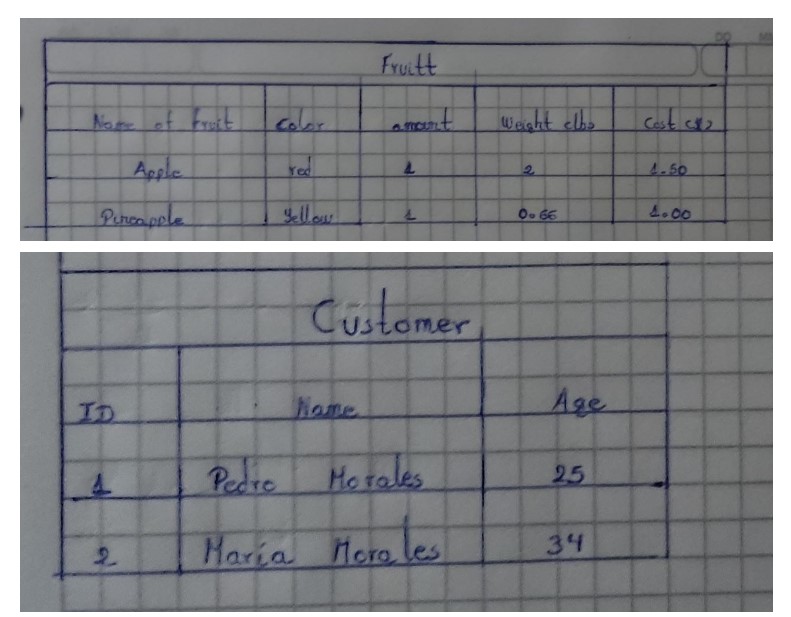 Fruitt
Name of fruit color amount Weight (lb) Cost ($)
Apple red 1 2 1.50
Pineapple Yellow 1 0.66 1.00
Customer
ID Name Age
1 Pedro Morales 25
2 María Morales 34